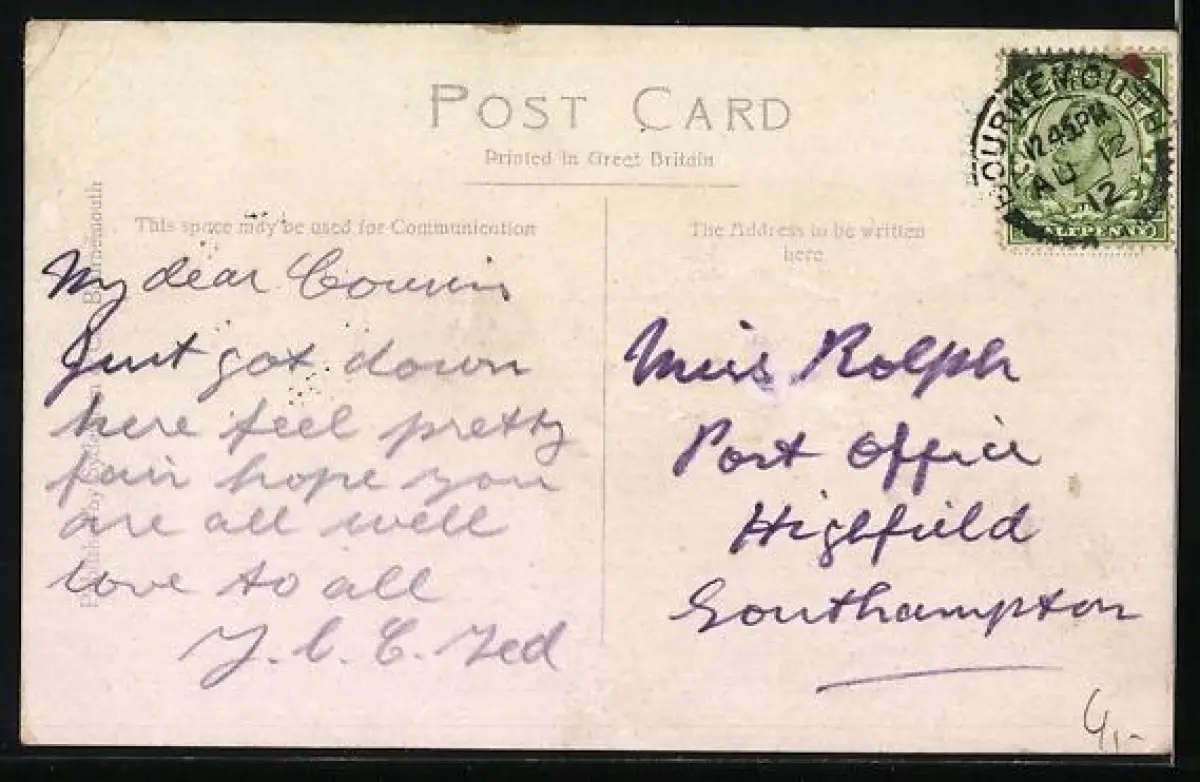 POST CARD
Printed in Great Britain
This space may be used for Communication
The Address to be written
here
BOURNEMOUTH
12 45 PM
AU 12
12
HALFPENNY
Bournemouth
My dear Cousin
Just got down
here feel pretty
fair hope you
are all well
love to all
Y. L. C. Ted
Miss Rolph
Post Office
Highfield
Southampton
4,-